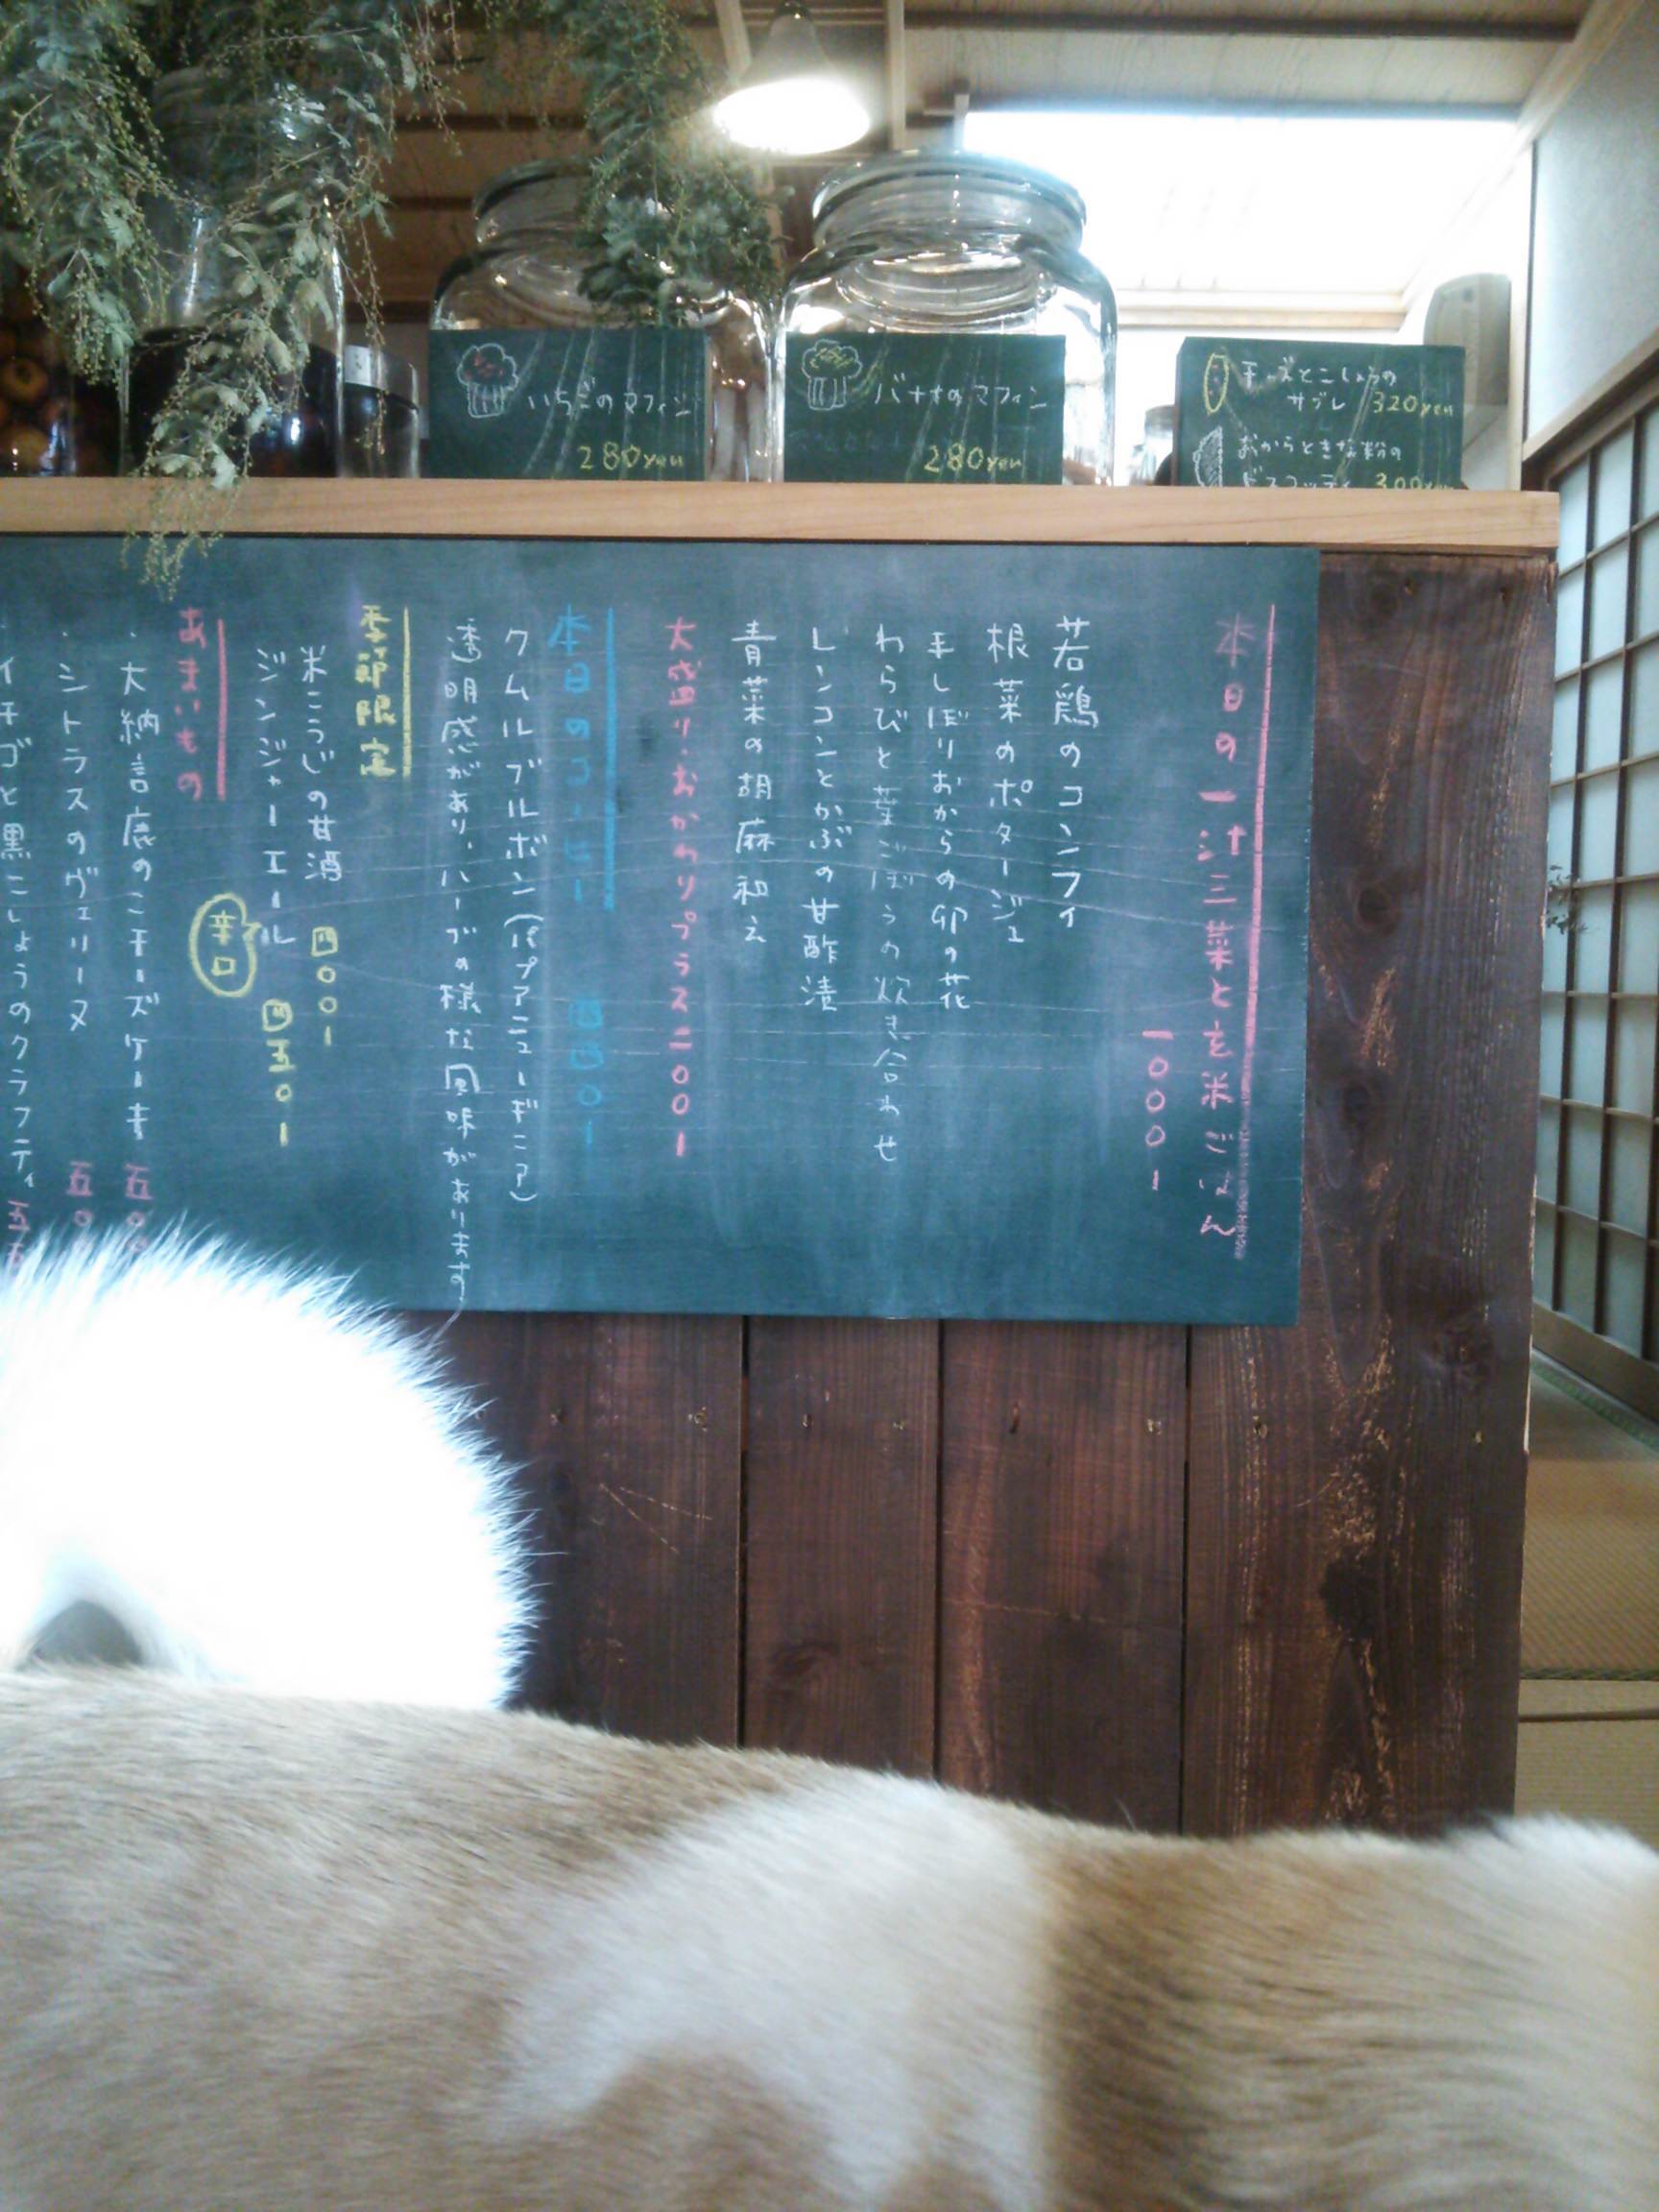 いちごのマフィン
280yen
バナナのマフィン
280yen
チーズとこしょうの
サブレ 320yen
おからときな粉の
ビスコッティ 300yen
本日の一汁三菜とを米ごはん
一〇〇〇ー
若鶏のコンフィ
根菜のポタージュ
生しぼりおからの卯の花
わらびと葉ごぼうの炊き合わせ
レンコンとかぶの甘酢漬
青菜の胡麻和え
大盛り・おかわりプラス二〇〇ー
本日のコーヒー 四四〇ー
クムルブルボン(パプアニューギニア)
透明感があり、ハーブの様な風味があります
季節限定
米こうじの甘酒 四〇〇ー
ジンジャーエール 四五〇ー
辛口
あまいもの
・大納言鹿のこチーズケーキ 五〇
・シトラスのヴェリーヌ 五〇
イチゴと黒こしょうのクラフティ 五五